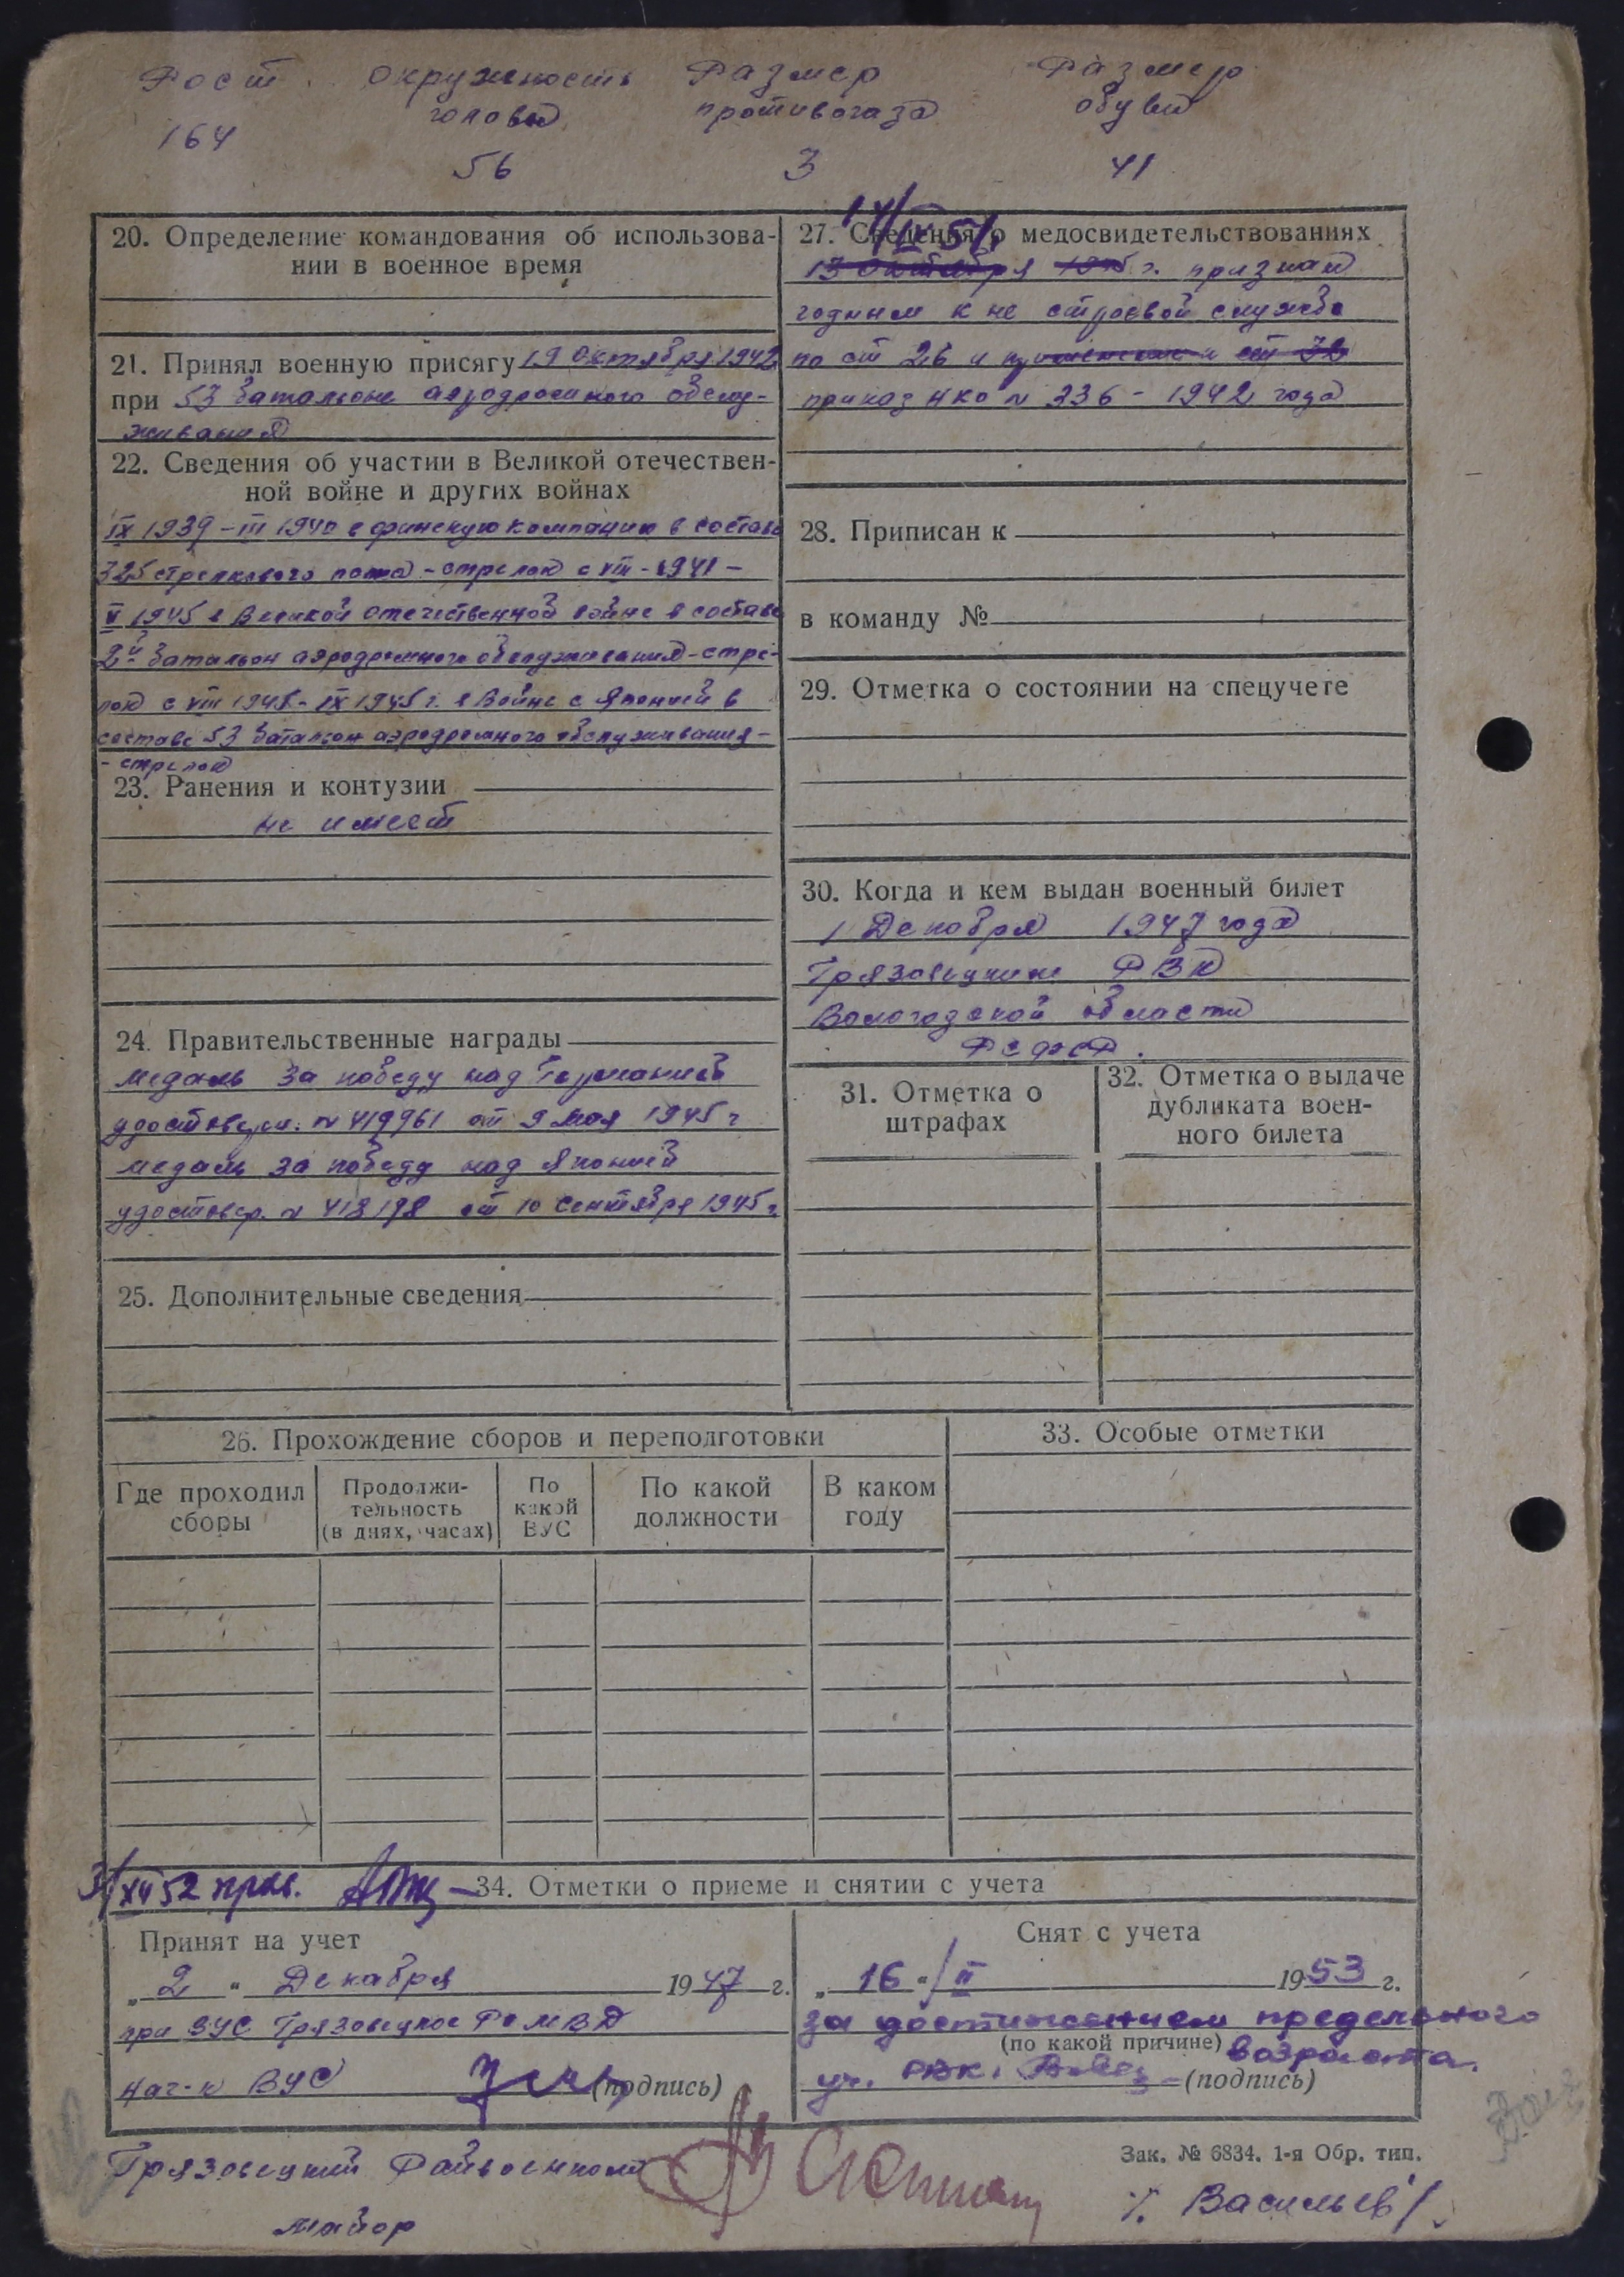 Рост окружность Размер Размер
головы противогаза обуви
164
56 3 41
20. Определение командования об использова-
нии в военное время
21. Принял военную присягу 19 Октября 1942
при 53 батальоне аэродромного обслу-
живания
22. Сведения об участии в Великой отечествен-
ной войне и других войнах
IX 1939 – III 1940 в финскую компанию в составе
325 стрелкового полка – стрелок с VIII – 1941 –
V 1945 в Великой отечественной войне в составе
2й батальон аэродромного обслуживания – стре-
лок с VIII 1945 – IX 1945 г. в Войне с Японией в
составе 53 батальон аэродромного обслуживания –
- стрелок
23. Ранения и контузии
не имеет
24. Правительственные награды
медаль за победу над Германией
удостовер. № 419961 от 9 мая 1945 г
медаль за победу над Японией
удостовер. № 418198 от 10 сентября 1945 г.
25. Дополнительные сведения
14/IV 51.
27. Сведения о медосвидетельствованиях
13 октября 1945 г. признан
годным к не строевой службе
по ст 26 и ст 32
приказ НКО № 336 – 1942 года
28. Приписан к
в команду №
29. Отметка о состоянии на спецучете
30. Когда и кем выдан военный билет
1 Декабря 1947 года
Грязовецким РВК
Вологодской области
РСФСР.
31. Отметка о
штрафах
32. Отметка о выдаче
дубликата воен-
ного билета
26. Прохождение сборов и переподготовки
Где проходил
сборы
Продолжи-
тельность
(в днях, часах)
По
какой
ВУС
По какой
должности
В каком
году
33. Особые отметки
31/XII 52 пров.
34. Отметки о приеме и снятии с учета
Принят на учет
„ 2 “ Декабря 1947 г.
при ВУС Грязовецкое РоМВД
нач-к ВУС (подпись)
Снят с учета
„ 16 “/II 1953 г.
за достижением предельного
(по какой причине) возраста.
уч. РВК. (подпись)
Грязовецкий Райвоенком
майор
Зак. № 6834. 1-я Обр. тип.
Васильев/.